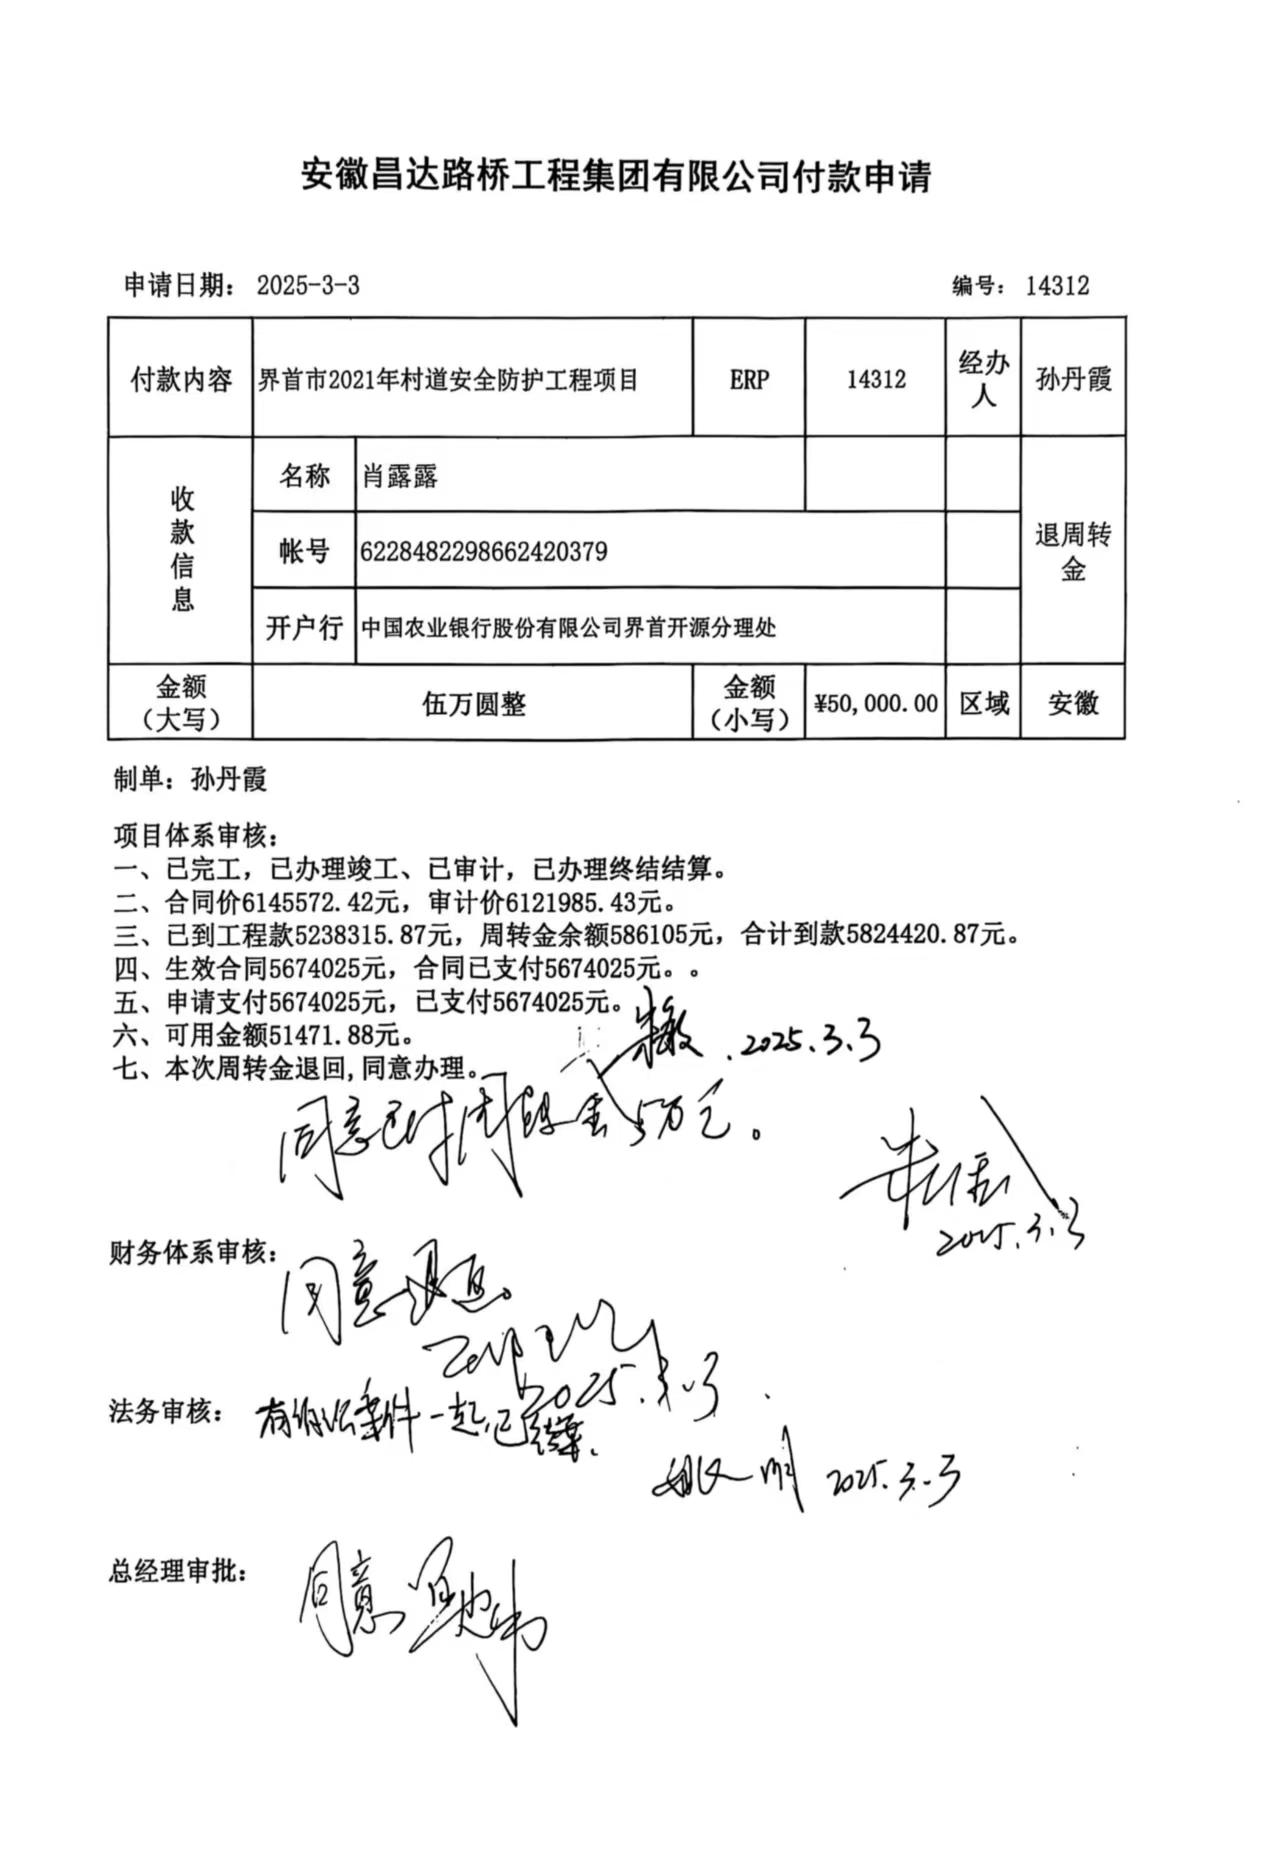 安徽昌达路桥工程集团有限公司付款申请
申请日期： 2025-3-3 编号： 14312
付款内容 界首市2021年村道安全防护工程项目 ERP 14312 经办人 孙丹霞
收款信息 名称 肖露露
帐号 6228482298662420379 退周转金
开户行 中国农业银行股份有限公司界首开源分理处
金额（大写） 伍万圆整 金额（小写） ¥50,000.00 区域 安徽
制单：孙丹霞
项目体系审核：
一、已完工，已办理竣工、已审计，已办理终结结算。
二、合同价6145572.42元，审计价6121985.43元。
三、已到工程款5238315.87元，周转金余额586105元，合计到款5824420.87元。
四、生效合同5674025元，合同已支付5674025元。。
五、申请支付5674025元，已支付5674025元。
六、可用金额51471.88元。
七、本次周转金退回,同意办理。
2025.3.3
同意 周转金5万元。
2025.3.3
财务体系审核：
同意退还。
2025.3.3
法务审核：
有 案件一起,已结案.
2025.3.3
总经理审批：
同意